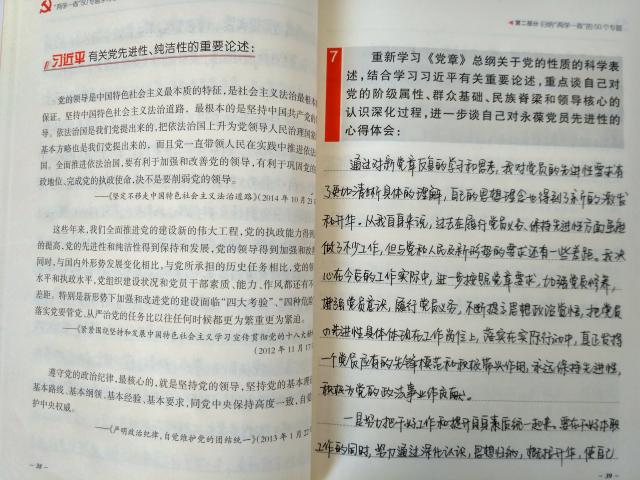 "两学一做"50个专题
习近平有关党先进性、纯洁性的重要论述:
党的领导是中国特色社会主义最本质的特征,是社会主义法治最根本
保证。坚持中国特色社会主义法治道路,最根本的是坚持中国共产党的
导。依法治国是我们党提出来的,把依法治国上升为党领导人民治理国家
基本方略也是我们党提出来的,而且党一直带领人民在实践中推进依法
国。全面推进依法治国,要有利于加强和改善党的领导,有利于巩固党
政地位、完成党的执政使命,决不是要削弱党的领导。
——《坚定不移走中国特色社会主义法治道路》(2014年10月2
这些年来,我们全面推进党的建设新的伟大工程,党的执政能力得
的提高,党的先进性和纯洁性得到保持和发展,党的领导得到加强和改
同时,与国内外形势发展变化相比,与党所承担的历史任务相比,党的
水平和执政水平,党组织建设状况和党员干部素质、能力、作风都还有不
差距。特别是新形势下加强和改进党的建设面临"四大考验"、"四种危险
落实党要管党、从严治党的任务比以往任何时候都更为繁重更为紧迫。
——《紧紧围绕坚持和发展中国特色社会主义学习宣传贯彻党的十八大精
(2012年11月17
遵守党的政治纪律,最核心的,就是坚持党的领导,坚持党的基本理
基本路线、基本纲领、基本经验、基本要求,同党中央保持高度一致,自
护中央权威。
——《严明政治纪律,自觉维护党的团结统一》(2013年1月22
· 38 ·
第二部分 归纳"两学一做"的50个专题
7
重新学习《党章》总纲关于党的性质的科学表
述,结合学习习近平有关重要论述,重点谈自己对
党的阶级属性、群众基础、民族脊梁和领导核心的
认识深化过程,进一步谈自己对永葆党员先进性的
心得体会:
通过对新党章反复的学习和思考,我对党员的先进性要求有
了更加清晰具体的理解,自己的思想理念也得到了新的激发
和升华。从我自身来说,过去在履行党员义务、保持先进性方面虽然
做了不少工作,但与党和人民及新形势的要求还有一些差距。我决
心在今后的工作实际中,进一步按照党章要求,加强党员修养,
增强党员意识,履行党员义务,不断提高思想政治觉悟,把党员
的先进性具体体现在工作岗位上,落实在实际行动中,真正发挥
一个党员应有的先锋模范和积极带头作用,永远保持先进性,
积极为党的政治事业作贡献。
一是努力把干好工作和提升自身素质统一起来。要在干好本职
工作的同时,努力通过深化认识,思想归纳,概括升华,使自己
· 39 ·